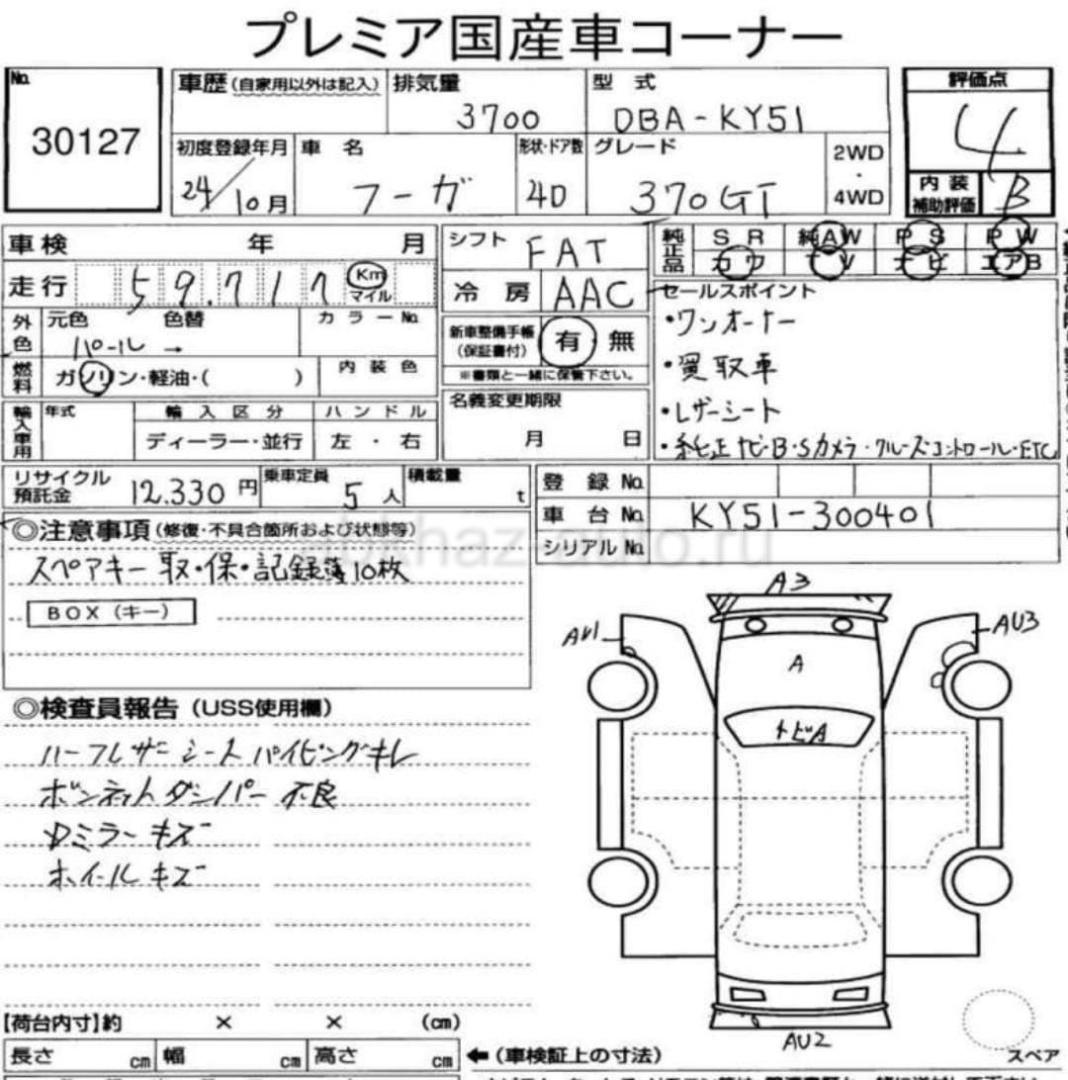 プレミア国産車コーナー
No. 30127
車歴(自家用以外は記入) 排気量 3700
型式 DBA-KY51
評価点 4
初度登録年月 24/10月
車名 フーガ
形状・ドア数 4D
グレード 370GT
2WD・4WD
内装補助評価 B
車検 年 月
シフト FAT
純正品 SR 純AW PS PW
カワ TV ナビ エアB
走行 59.717 Km マイル
冷房 AAC
セールスポイント
・ワンオーナー
・買取車
・レザーシート
・純正ナビ・B・Sカメラ・クルーズコントロール・ETC
外色 元色 パール → 色替 カラーNo.
新車整備手帳(保証書付) 有 無
※書類と一緒に保管下さい。
燃料 ガソリン・軽油・( ) 内装色
名義変更期限 月 日
輸入車用 年式 輸入区分 ハンドル
ディーラー・並行 左・右
リサイクル預託金 12.330円
乗車定員 5人
積載量 t
登録No.
車台No. KY51-300401
シリアルNo.
◎注意事項(修復・不具合箇所および状態等)
スペアキー 取・保・記録簿10枚
BOX(キー)
abkhaz-auto.ru
A3
AU1
AU3
A
トビA
◎検査員報告(USS使用欄)
ハーフレザーシート パイピングキレ
ボンネットダンパー不良
Dミラーキズ
ホイールキズ
AU2
スペア
【荷台内寸】約 × × (cm)
長さ cm 幅 cm 高さ cm ←(車検証上の寸法)